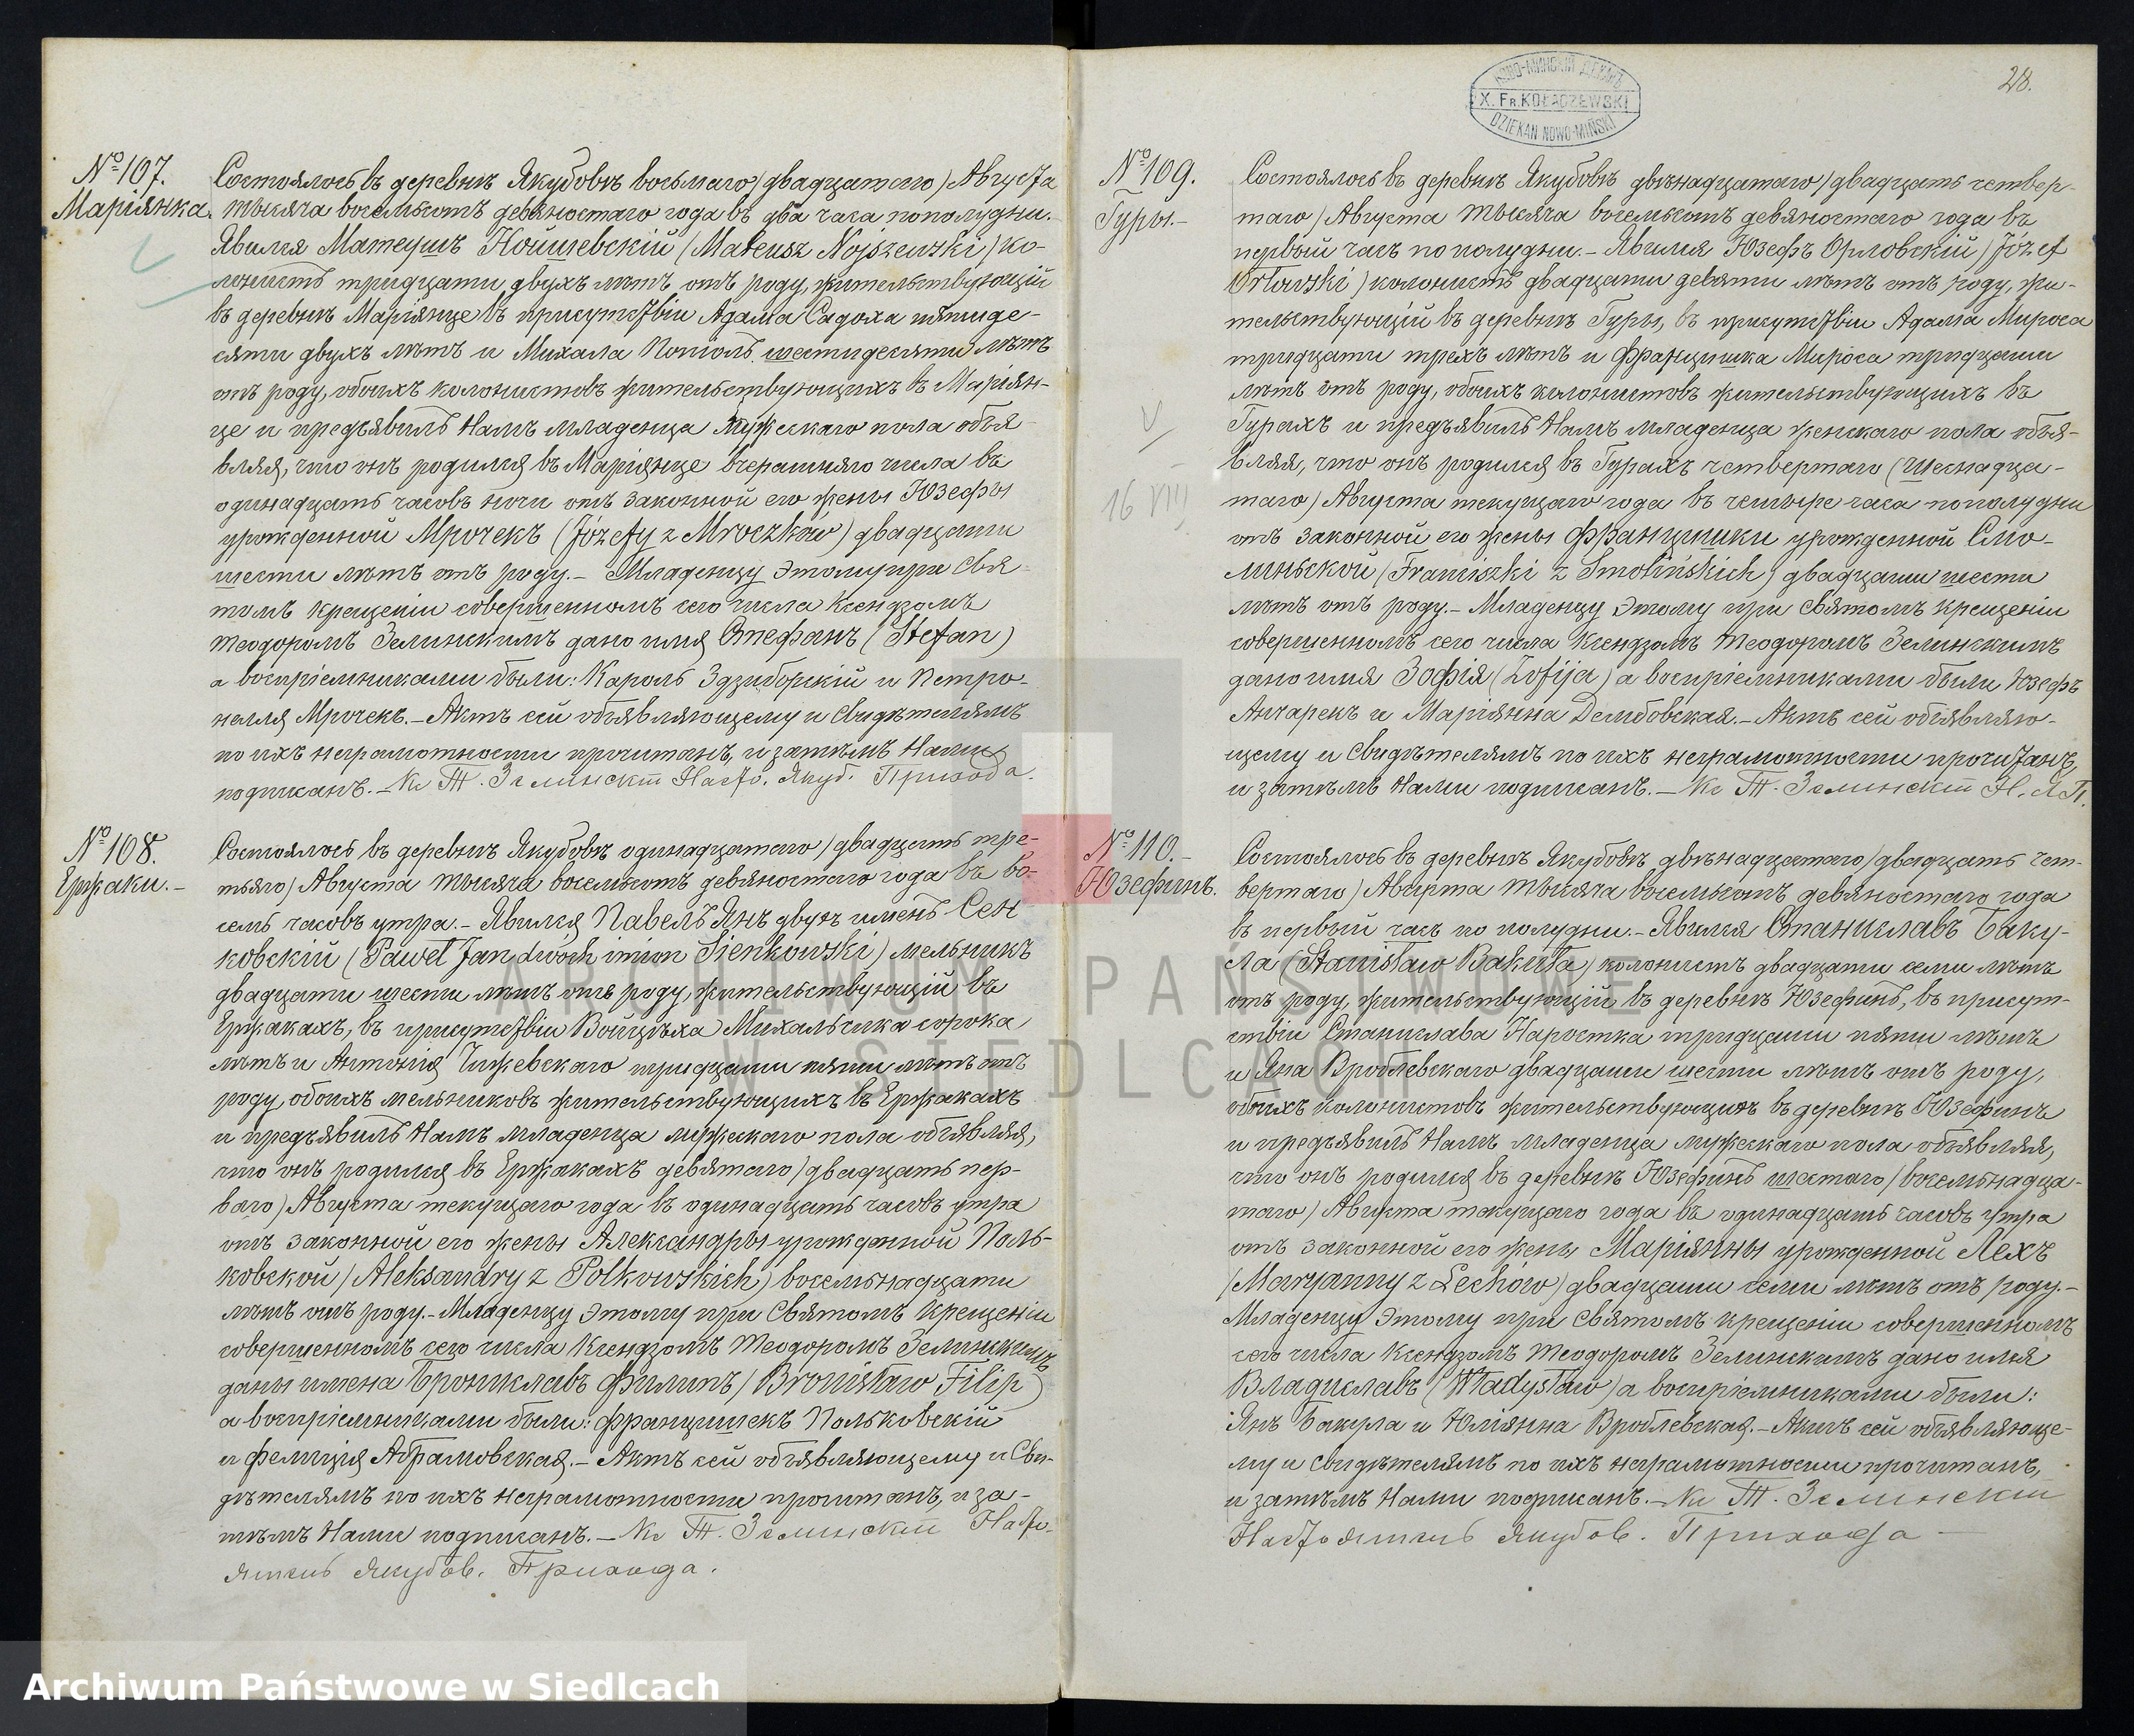 №107.
Маріянка.
Состоялось въ деревнѣ Якубовѣ восьмаго (двадцатаго) Августа
тысяча восемьсотъ девяностаго года въ два часа пополудни.
Явился Матеушъ Нойшевскій (Mateusz Nojszewski) ко-
лонистъ тридцати двухъ лѣтъ отъ роду, жительствующій
въ деревнѣ Маріянце въ присутствіи Адама Садоха пятиде-
сяти двухъ лѣтъ и Михала Попіоль шестидесяти лѣтъ
отъ роду, обоихъ колонистовъ жительствующихъ въ Маріян-
це и предъявилъ Намъ младенца мужескаго пола объя-
вляя, что онъ родился въ Маріянце вчерашняго числа въ
одинадцать часовъ ночи отъ законной его жены Юзефы
урожденной Мрочекъ (Józefy z Mroczków) двадцати
шести лѣтъ отъ роду.- Младенцу этому при Свя-
томъ крещеніи совершенномъ сего числа Ксендзомъ
Теодоромъ Зелинскимъ дано имя Стефанъ (Stefan)
а воспріемниками были: Кароль Здзиборскій и Петро-
нелля Мрочекъ.- Актъ сей объявляющему и Свидѣтелямъ
по ихъ неграмотности прочитанъ, и затѣмъ Нами
подписанъ.- Кс Т. Зелинскій Насто. Якуб. Прихода.
№108.
Ержаки.-
Состоялось въ деревнѣ Якубовѣ одинадцатаго (двадцать тре-
тьяго) Августа тысяча восемьсотъ девяностаго года въ во-
семь часовъ утра.- Явился Павелъ Янъ двухъ именъ Сен
ковскій (Paweł Jan dwoch imion Sienkowski) мельникъ
двадцати шести лѣтъ отъ роду, жительствующій въ
Ержакахъ, въ присутствіи Войцѣха Михальчика сорока
лѣтъ и Антонія Чижевскаго тридцати пяти лѣтъ отъ
роду, обоихъ мельниковъ жительствующихъ въ Ержакахъ
и предъявилъ Намъ младенца мужескаго пола объявляя,
что онъ родился въ Ержакахъ девятаго (двадцать пер-
ваго) Августа текущаго года въ одинадцать часовъ утра
отъ законной его жены Александры урожденной Поль-
ковской (Aleksandry z Polkowskich) восемьнадцати
лѣтъ отъ роду.- Младенцу этому при Святомъ крещеніи
совершенномъ сего числа Ксендзомъ Теодоромъ Зелинскимъ
даны имена Брониславъ Филипъ (Bronisław Filip)
а воспріемниками были: Францишекъ Польковскій
и Фелиція Абрамовская.- Актъ сей объявляющему и Сви-
дѣтелямъ по ихъ неграмотности прочитанъ, и за-
тѣмъ Нами подписанъ.- Кс Т. Зелинскій Насто-
ятель Якубов. Прихода.
НОВО-МИНСКІЙ ДЕКАНЪ
X. FR. KOŁADZEWSKI
DZIEKAN NOWO-MIŃSKI
28.
№109.
Гуры.-
16 VIII
Состоялось въ деревнѣ Якубовѣ двѣнадцатаго (двадцать четвер-
таго) Августа тысяча восемьсотъ девяностаго года въ
первый часъ по полудни.- Явился Юзефъ Орловскій (Józef
Orłowski) колонистъ двадцати девяти лѣтъ отъ роду, жи-
тельствующій въ деревнѣ Гуры, въ присутствіи Адама Мироса
тридцати трехъ лѣтъ и Францишка Мироса тридцати
лѣтъ отъ роду, обоихъ колонистовъ жительствующихъ въ
Гурахъ и предъявилъ Намъ младенца женскаго пола объя-
вляя, что онъ родился въ Гурахъ четвертаго (шеснадца-
таго) Августа текущаго года въ четыре часа пополудни
отъ законной его жены Францишки урожденной Смо-
линьской (Franciszki z Smolińskich) двадцати шести
лѣтъ отъ роду.- Младенцу этому при Святомъ крещеніи
совершенномъ сего числа Ксендзомъ Теодоромъ Зелинскимъ
дано имя Зофія (Zofija) а воспріемниками были Юзефъ
Анчарекъ и Маріянна Дембовская.- Актъ сей объявляю-
щему и Свидѣтелямъ по ихъ неграмотности прочитанъ,
и затѣмъ Нами подписанъ.- Кс Т. Зелинскій Н. Я. П.
№110.-
Юзефинъ.
Состоялось въ деревнѣ Якубовѣ двѣнадцатаго (двадцать чет-
вертаго) Августа тысяча восемьсотъ девяностаго года
въ первый часъ по полудни.- Явился Станиславъ Баку-
ла (Stanisław Bakuła) колонистъ двадцати семи лѣтъ
отъ роду, жительствующій въ деревнѣ Юзефинѣ, въ присут-
ствіи Станислава Наростка тридцати пяти лѣтъ
и Яна Вроблевскаго двадцати шести лѣтъ отъ роду,
обоихъ колонистовъ жительствующихъ въ деревнѣ Юзефинѣ
и предъявилъ Намъ младенца мужескаго пола объявляя,
что онъ родился въ деревнѣ Юзефинѣ шестаго (восемьнадца-
таго) Августа текущаго года въ одинадцать часовъ утра
отъ законной его жены Маріянны урожденной Лехъ
(Maryanny z Lechów) двадцати семи лѣтъ отъ роду.-
Младенцу этому при Святомъ крещеніи совершенномъ
сего числа Ксендзомъ Теодоромъ Зелинскимъ дано имя
Владиславъ (Władysław) а воспріемниками были:
Янъ Бакула и Юліянна Вроблевская.- Актъ сей объявляюще-
му и Свидѣтелямъ по ихъ неграмотности прочитанъ,
и затѣмъ Нами подписанъ.- Кс Т. Зелинскій
Настоятель Якубов. Прихода
ARCHIWUM PAŃSTWOWE
W SIEDLCACH
Archiwum Państwowe w Siedlcach